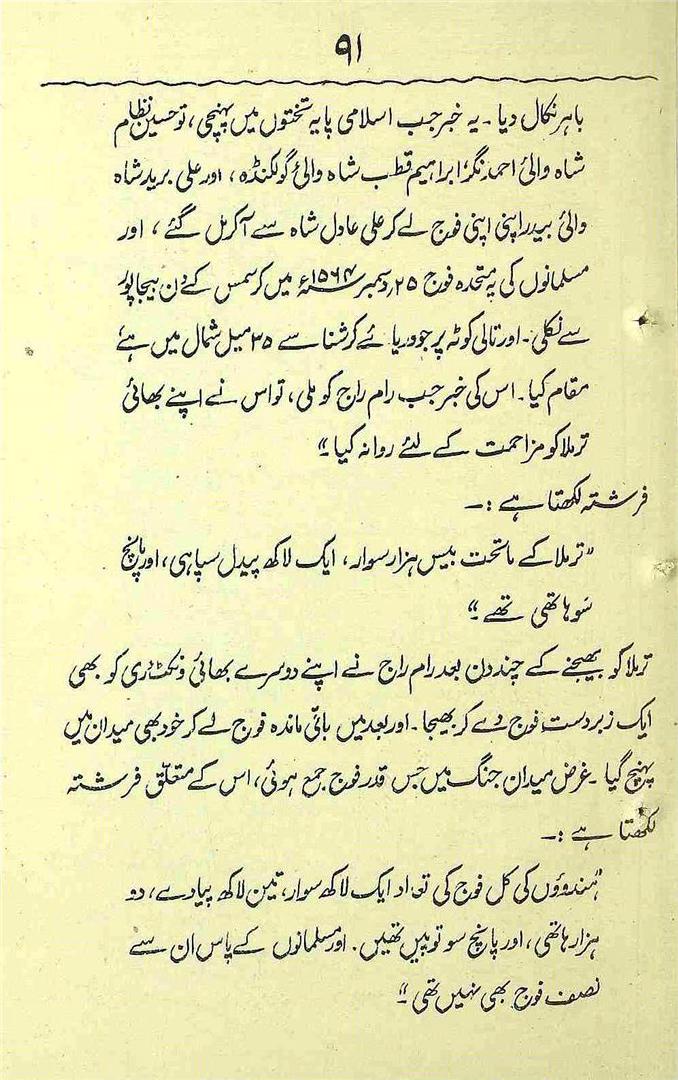 ۹۱
باہر نکال دیا۔ یہ خبر جب اسلامی پایہ تختوں میں پہنچی، تو حسین نظام
شاہ والئ احمد نگر، ابراہیم قطب شاہ والئ گولکنڈہ، اور علی برید شاہ
والئ بیدر اپنی اپنی فوج لے کر علی عادل شاہ سے آکر مل گئے، اور
مسلمانوں کی یہ متحدہ فوج ۲۵ دسمبر ۱۵۶۴ء میں کرسمس کے دن بیجاپور
سے نکلی۔ اور تالی کوٹہ پر جو دریائے کرشنا سے ۳۵ میل شمال میں ہے
مقام کیا۔ اس کی خبر جب رام راج کو ملی، تو اس نے اپنے بھائی
ترملا کو مزاحمت کے لئے روانہ کیا۔"
فرشتہ لکھتا ہے :—
"ترملا کے ماتحت بیس ہزار سوار، ایک لاکھ پیدل سپاہی، اور پانچ
سو ہاتھی تھے۔"
ترملا کو بھیجنے کے چند دن بعد رام راج نے اپنے دوسرے بھائی ونکٹدری کو بھی
ایک زبردست فوج دے کر بھیجا۔ اور بعد میں باقی ماندہ فوج لے کر خود بھی میدان میں
پہنچ گیا۔ غرض میدان جنگ میں جس قدر فوج جمع ہوئی، اس کے متعلق فرشتہ
لکھتا ہے :—
"ہندوؤں کی کل فوج کی تعداد ایک لاکھ سوار، تین لاکھ پیادے، دو
ہزار ہاتھی، اور پانچ سو توپیں تھیں۔ اور مسلمانوں کے پاس ان سے
نصف فوج بھی نہیں تھی۔"